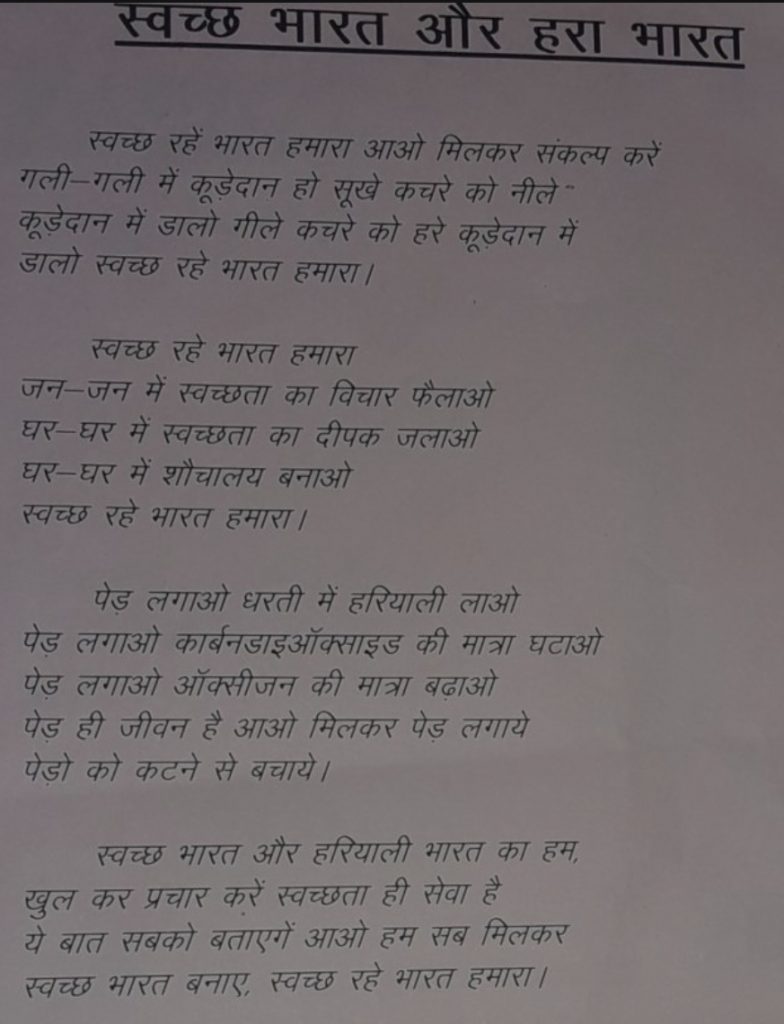 स्वच्छ भारत और हरा भारत
स्वच्छ रहें भारत हमारा आओ मिलकर संकल्प करें
गली–गली में कूड़ेदान हो सूखे कचरे को नीले
कूड़ेदान में डालो गीले कचरे को हरे कूड़ेदान में
डालो स्वच्छ रहे भारत हमारा।
स्वच्छ रहे भारत हमारा
जन–जन में स्वच्छता का विचार फैलाओ
घर–घर में स्वच्छता का दीपक जलाओ
घर–घर में शौचालय बनाओ
स्वच्छ रहे भारत हमारा।
पेड़ लगाओ धरती में हरियाली लाओ
पेड़ लगाओ कार्बनडाइऑक्साइड की मात्रा घटाओ
पेड़ लगाओ ऑक्सीजन की मात्रा बढ़ाओ
पेड़ ही जीवन है आओ मिलकर पेड़ लगाये
पेड़ो को कटने से बचाये।
स्वच्छ भारत और हरियाली भारत का हम,
खुल कर प्रचार करें स्वच्छता ही सेवा है
ये बात सबको बताएगें आओ हम सब मिलकर
स्वच्छ भारत बनाए, स्वच्छ रहे भारत हमारा।